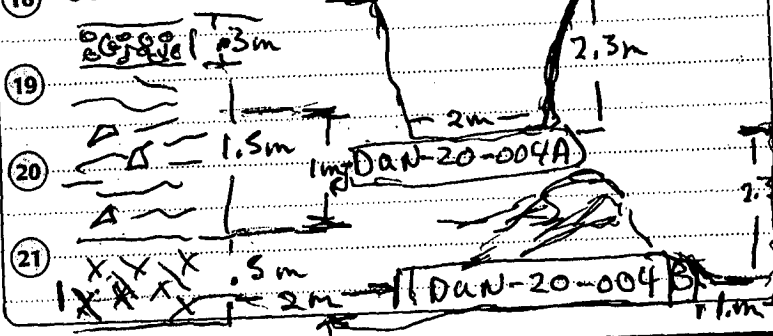 18
.3m
2.3m
19
2m
1.5m
1m
DAN-20-004A
20
21
.5m
2m
DAN-20-004B
1.m